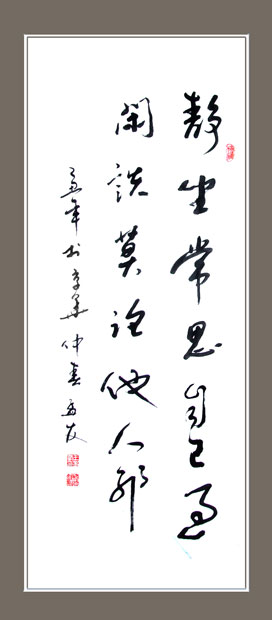 静坐常思自己过
闲谈莫论他人非
年书京华仲春